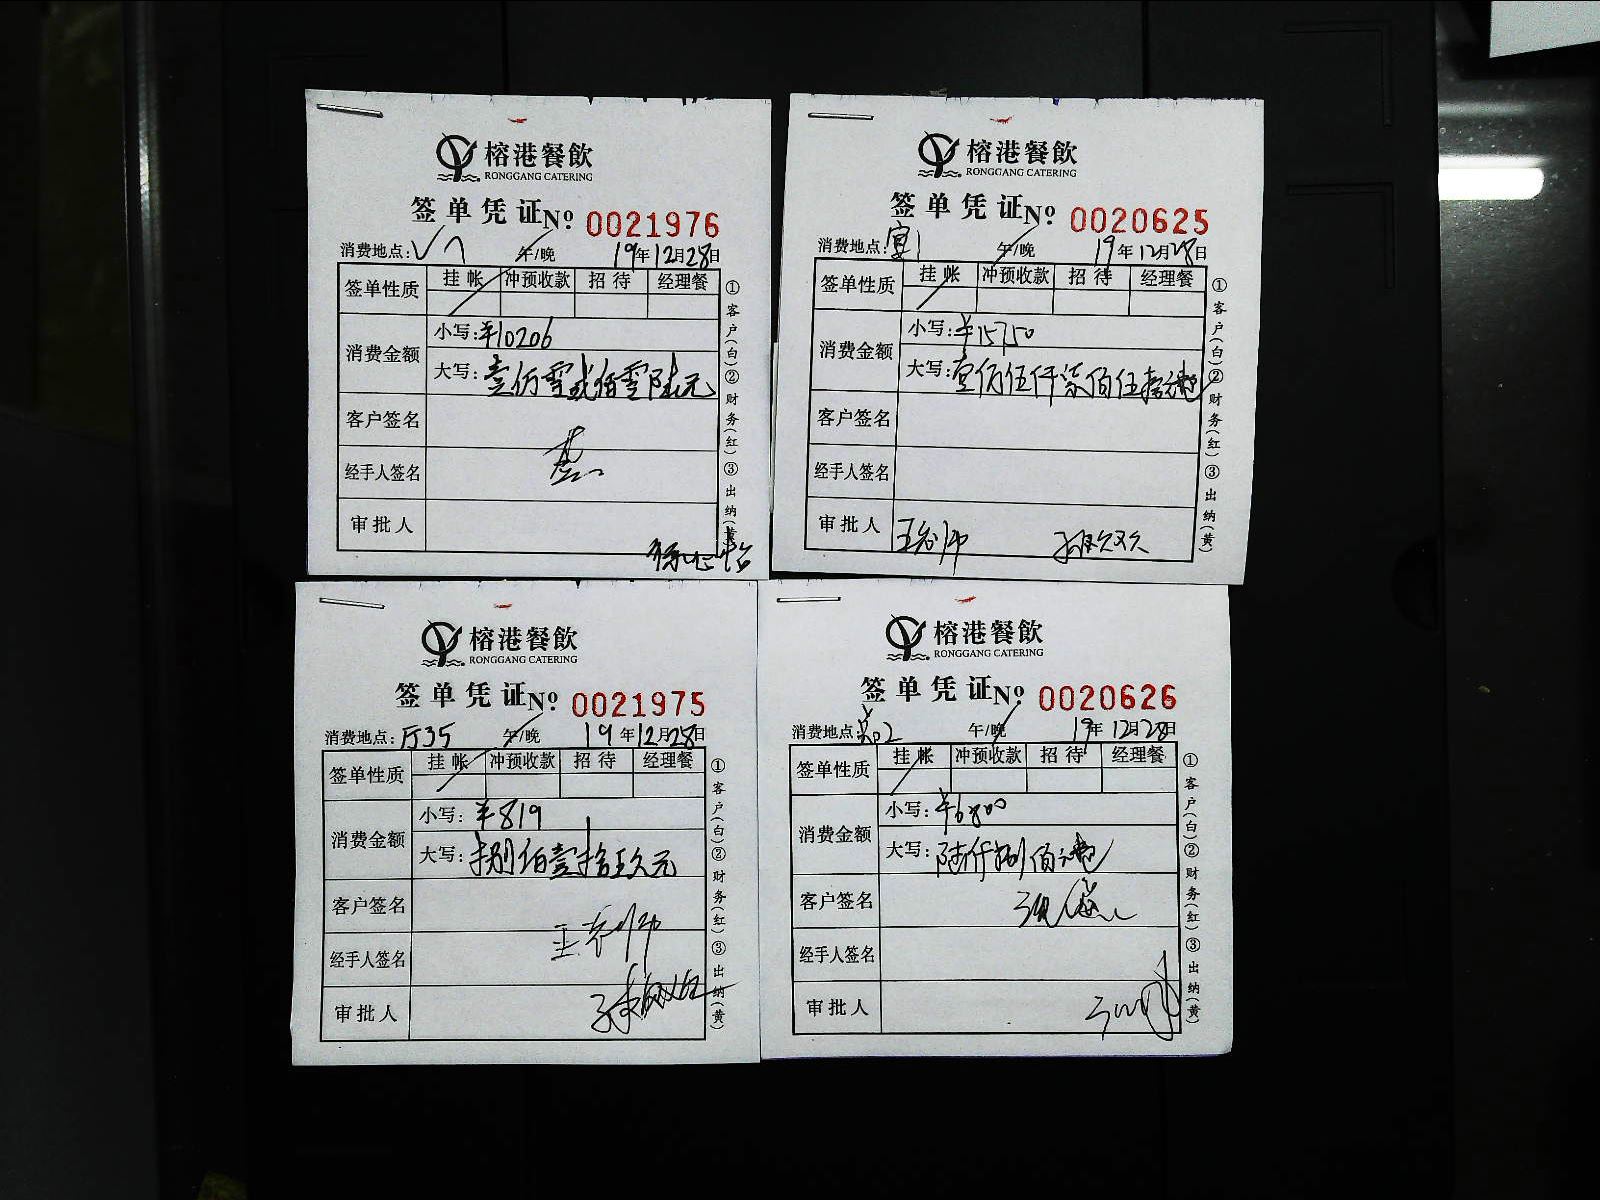 榕港餐飲
RONGGANG CATERING
签单凭证 No 0021976
消费地点: 午/晚 19年12月28日
签单性质 挂帐 冲预收款 招待 经理餐
消费金额
小写:¥10206
大写:壹仿零贰佰零陆元
客户签名
经手人签名
审批人
①客户(白)②财务(红)③出纳(黄)
榕港餐飲
RONGGANG CATERING
签单凭证 No 0020625
消费地点:宴1 午/晚 19年12月28日
签单性质 挂帐 冲预收款 招待 经理餐
消费金额
小写:¥15750
大写:壹仿伍仟柒佰伍拾元整
客户签名
经手人签名
审批人
①客户(白)②财务(红)③出纳(黄)
榕港餐飲
RONGGANG CATERING
签单凭证 No 0021975
消费地点:厅35 午/晚 19年12月28日
签单性质 挂帐 冲预收款 招待 经理餐
消费金额
小写:¥819
大写:捌佰壹拾玖元
客户签名
经手人签名
审批人
①客户(白)②财务(红)③出纳(黄)
榕港餐飲
RONGGANG CATERING
签单凭证 No 0020626
消费地点: 午/晚 19年12月28日
签单性质 挂帐 冲预收款 招待 经理餐
消费金额
小写:¥6800
大写:陆仟捌佰元整
客户签名
经手人签名
审批人
①客户(白)②财务(红)③出纳(黄)